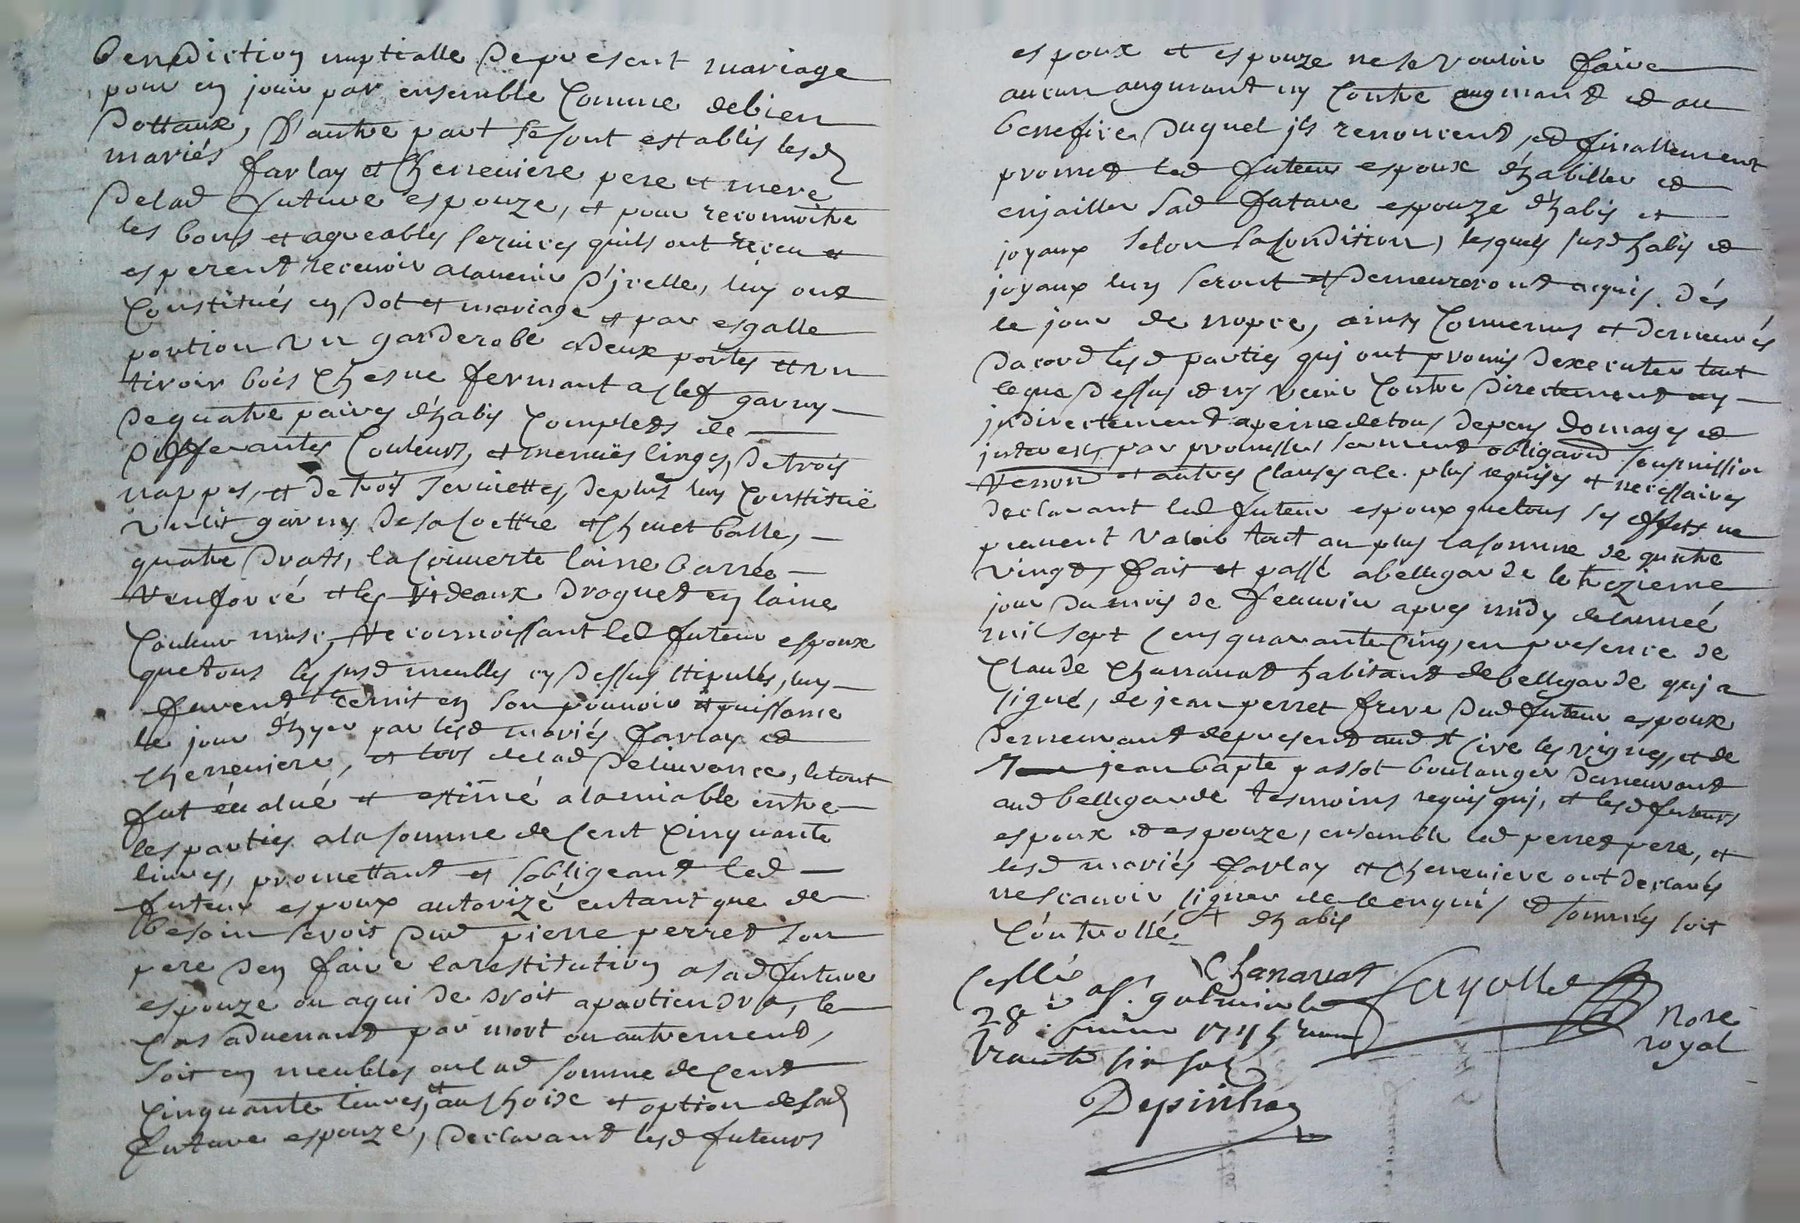 benediction nuptialle de present mariage
pour en jouir par ensemble comme de bien
dottaux, d'autre part se sont establis lesd
mariés farlay et Cheneviere pere et mere
de lad future espouze, et pour reconnoitre
les bons et agreables services quils ont receu et
esperent recevoir a lavenir d'jcelle, luy ont
constitués en dot et mariage et par esgalle
portion un garderobe a deux portes et un
tiroir bois chesne fermant a clef garny
de quatre paires d'habis complets de
differantes couleurs, et menües linges, de trois
nappes, et de trois serviettes, de plus luy constitüe
un lit garny de sa coettre et chevet balle,
quatre draps, la couverte laine barrée
renforcé et les rideaux droguet en laine
couleur musc, reconnoissant led futeur espoux
que tous les susd meubles cy dessus stipulés, luy
furent remit en son pouvoir et puissance
le jour d'hyer par lesd mariés farlay et
Cheneviere, et lors de lad delivrance, le tout
fut évalué et estimé a lamiable entre
les parties a la somme de cent cinquante
livres, promettant et sobligeant led
futeur espoux autorizé entant que de
besoin seroit dud pierre perret son
pere d'en faire la restitution a sad future
espouze ou a qui de droit apartiendra, le
cas advenant par mort ou autrement,
soit en meubles ou lad somme de cent
cinquante livres, et au choix et option de sad
future espouze, declarant lesd futeurs
espoux et espouze ne se vouloir faire
aucun augmant ny contre augmant et au
benefice duquel jls renoncent, et finallement
promet led futeur espoux d'habiller et
enjailler sad future espouze d'habis et
joyaux selon sa condition, lesquels susd habis et
joyaux luy seront et demeureront acquis dés
le jour de nopce, ainsy convenus et demeurés
dacord lesd parties qui ont promis dexecuter tout
le que dessus et ny venir contre directement ny
jndirectement a peine de tous depens domages et
jnterests, par promesses serment obligaon soumission
renon et autres clauses a ce plus requises et necessaires
declarant led futeur espoux que tous ses effets ne
peuvent valoir tout au plus la somme de quatre
vingt, fait et passé a bellegarde le trezieme
jour du mois de feuvrier apres midy de lannée
mil sept cens quarante cinq, en presence de
Claude Chanavat habitant de bellegarde qui a
signé, de jean perret frere dud futeur espoux
demeurant de present aud st cire les vignes, et de
jean bapte passot boulanger demeurant
aud bellegarde tesmoins requis qui, et lesd futeurs
espoux et espouze, ensemble led perret pere, et
lesd mariés farlay et Cheneviere ont declarés
ne scavoir signer de ce enquis et sommés soit
controllé + d'habis
Chanavat
Cellé a St. galmier le
28e fevrier 1745 Receu
trante six sols
Fayolle
Nore
royal
Depinhac